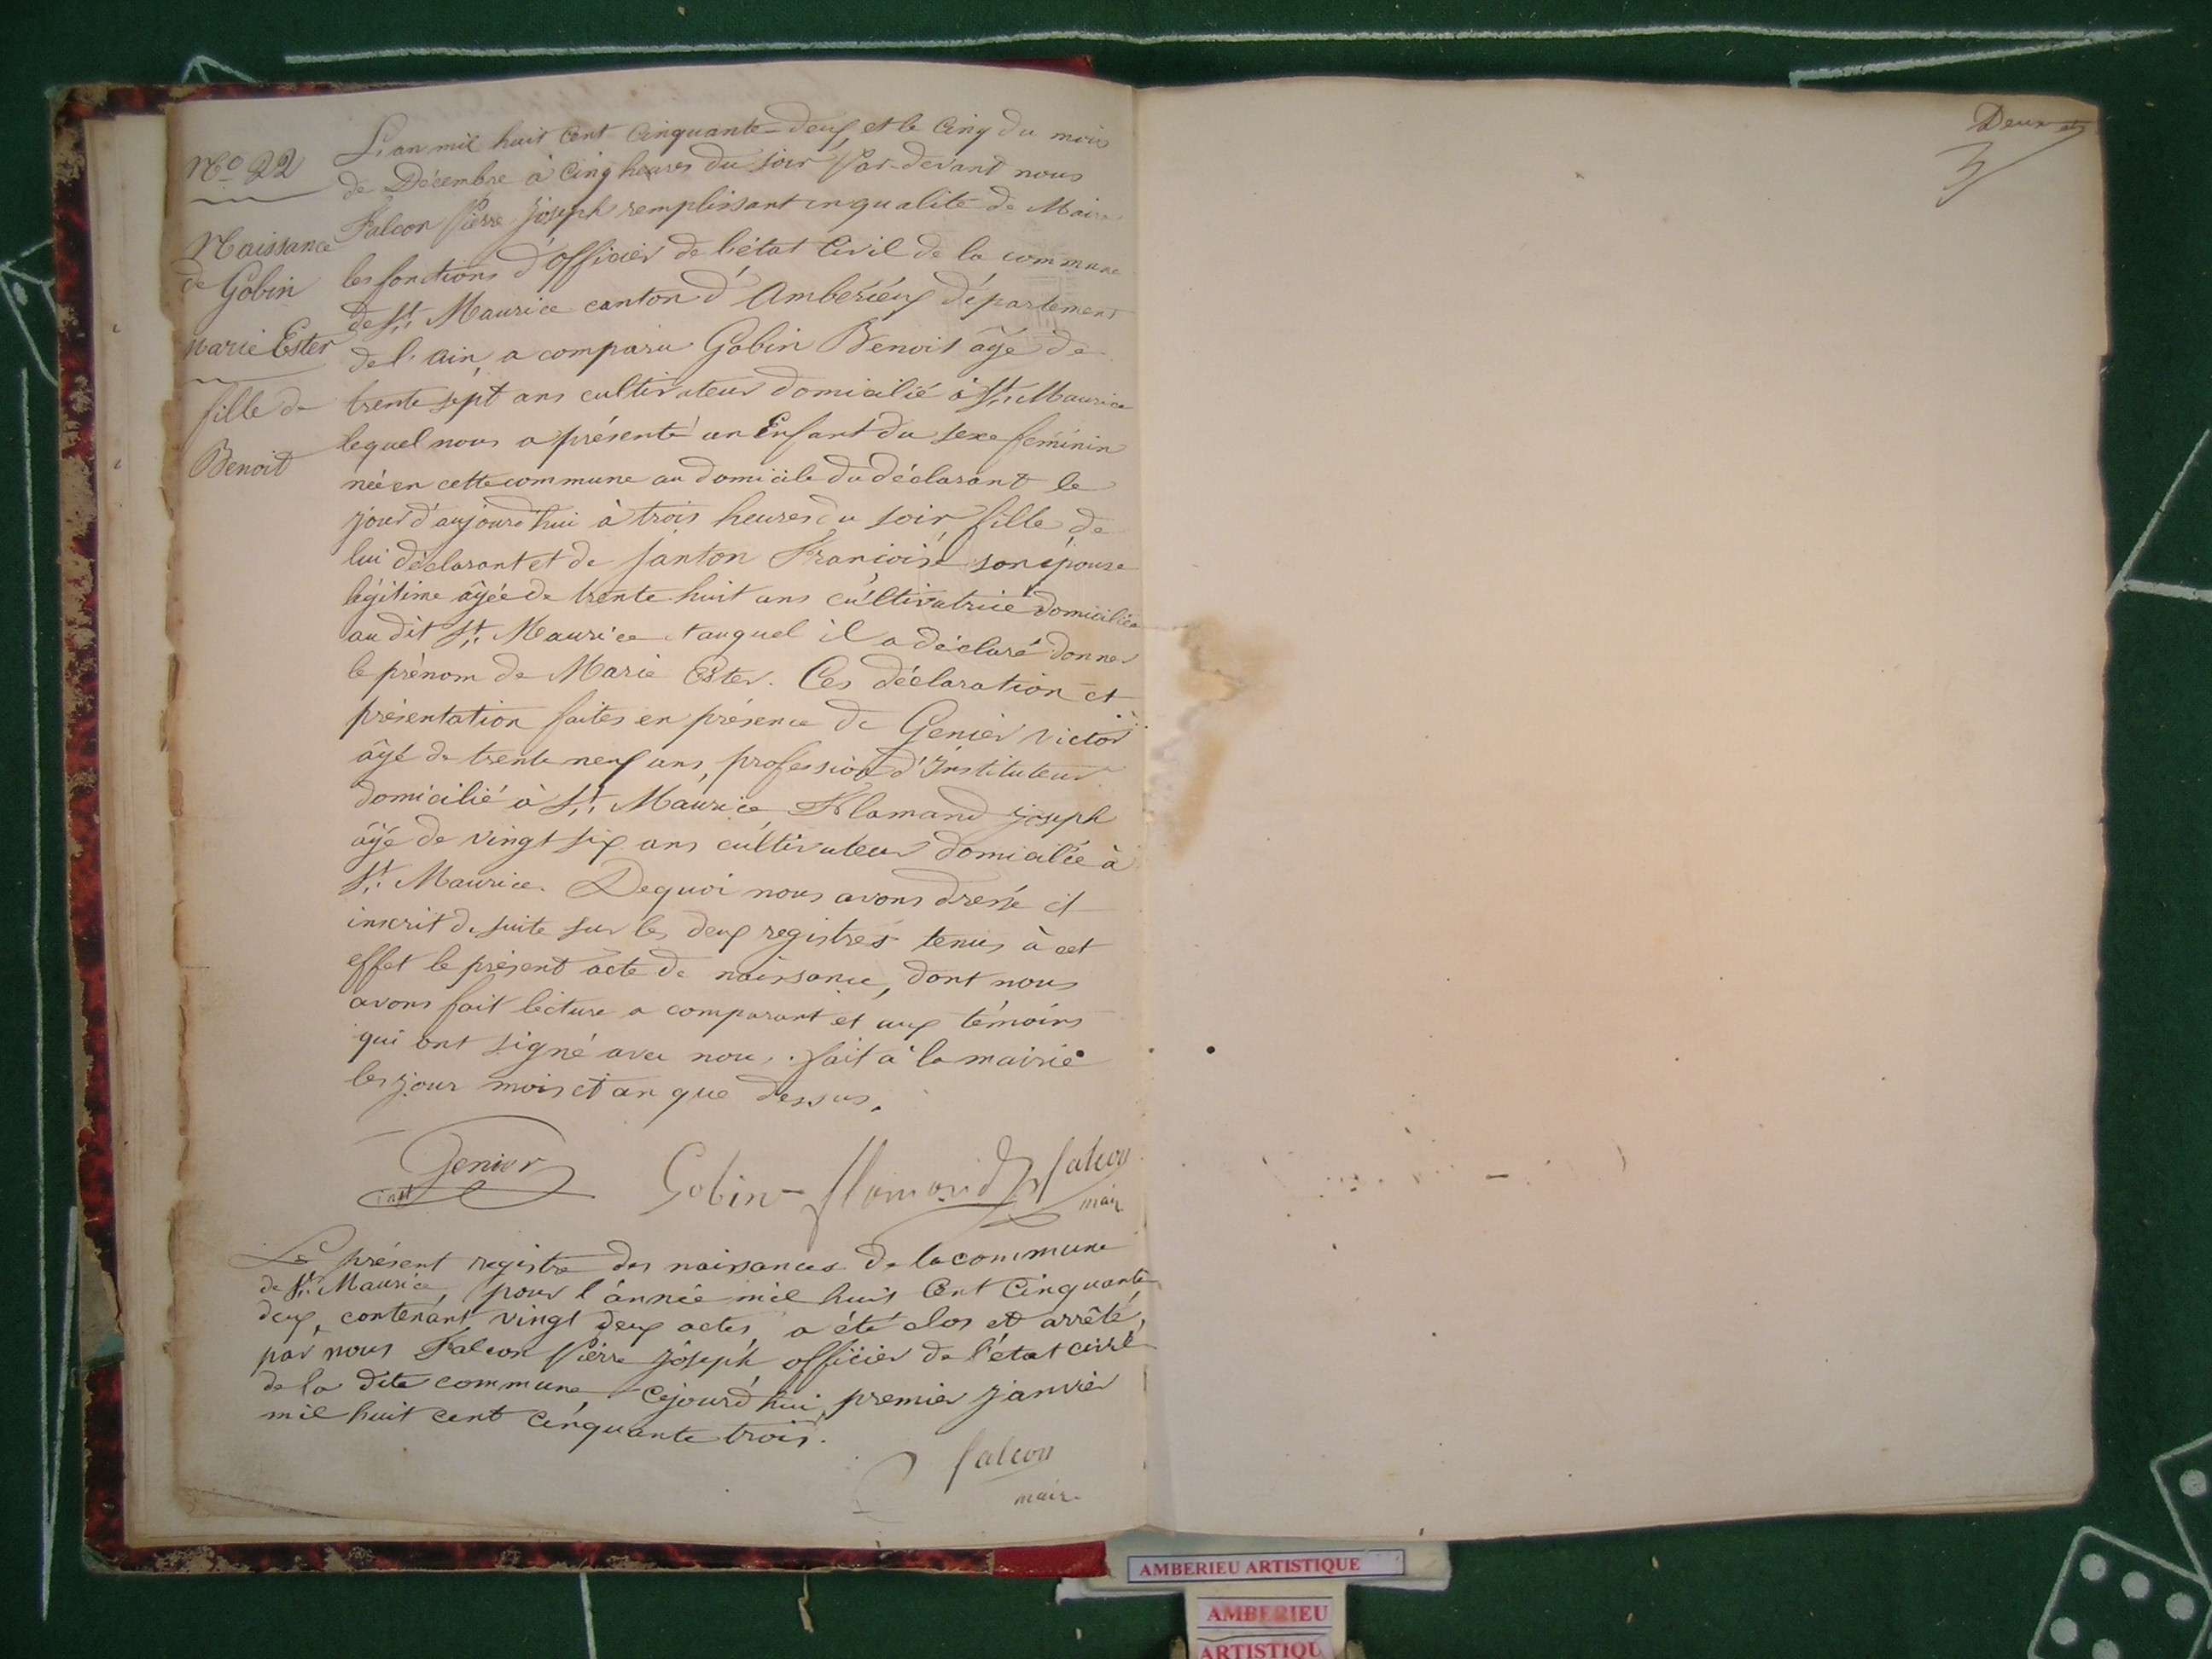 N.o 22
Naissance
de Gobin
Marie Ester
fille de
Benoit
L'an mil huit Cent Cinquante-deux, et le Cinq du mois
de Décembre à Cinq heures du soir Par-devant nous
Falcon Pierre Joseph remplissant en qualité de Maire
les fonctions d'Officier de l'état Civil de la commune
de St. Maurice canton d'Ambérieux département
de l'ain, a comparu Gobin Benoit âgé de
trente sept ans cultivateur domicilié à St. Maurice
lequel nous a présenté un Enfant du sexe féminin
née en cette commune au domicile du déclarant le
jour d'aujourd'hui à trois heures du soir, fille de
lui déclarant et de Janton Francoise son épouse
légitime âgée de trente huit ans cultivatrice domiciliée
au dit St. Maurice et auquel il a déclaré donner
le prénom de Marie Ester. Ces déclaration et
présentation faites en présence de Genier Victor
âgé de trente neuf ans, profession d'Instituteur
domicilié à St. Maurice, Flamand Joseph
âgé de vingt six ans cultivateur domicilié à
St. Maurice. De quoi nous avons dressé et
inscrit de suite sur les deux registres tenus à cet
effet le présent acte de naissance, dont nous
avons fait lecture a comparant et aux témoins
qui ont signé avec nous. fait à la mairie
les jour mois et an que dessus.
Genier
inst
Gobin
flamand
falcon
mair
Le présent registre des naissances de la commune
de St. Maurice, pour l'année mil huit Cent Cinquante
deux, contenant vingt deux actes, a été clos et arrêté,
par nous Falcon Pierre Joseph, officier de l'état civil
de la dite commune, Cejourd'hui, premier janvier
mil huit cent cinquante trois.
falcon
mair.
Deux
AMBERIEU ARTISTIQUE
AMBERIEU
ARTISTIQU